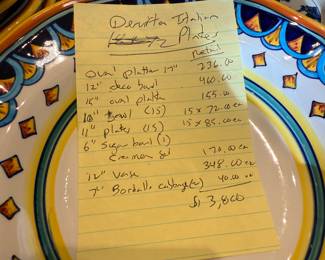 Deruta Italian
Plates
Retail
Oval platter 17" 236.00
12" deco bowl 460.00
15" oval platter 155.00
10" Bowl (15) 15 x 72.00 ea
11" plates (15) 15 x 85.00 ea
6" Sugar bowl (1)
set 170.00 ea
12" Vase 348.00 ea
7" cabbage 40.00
$ 3,800